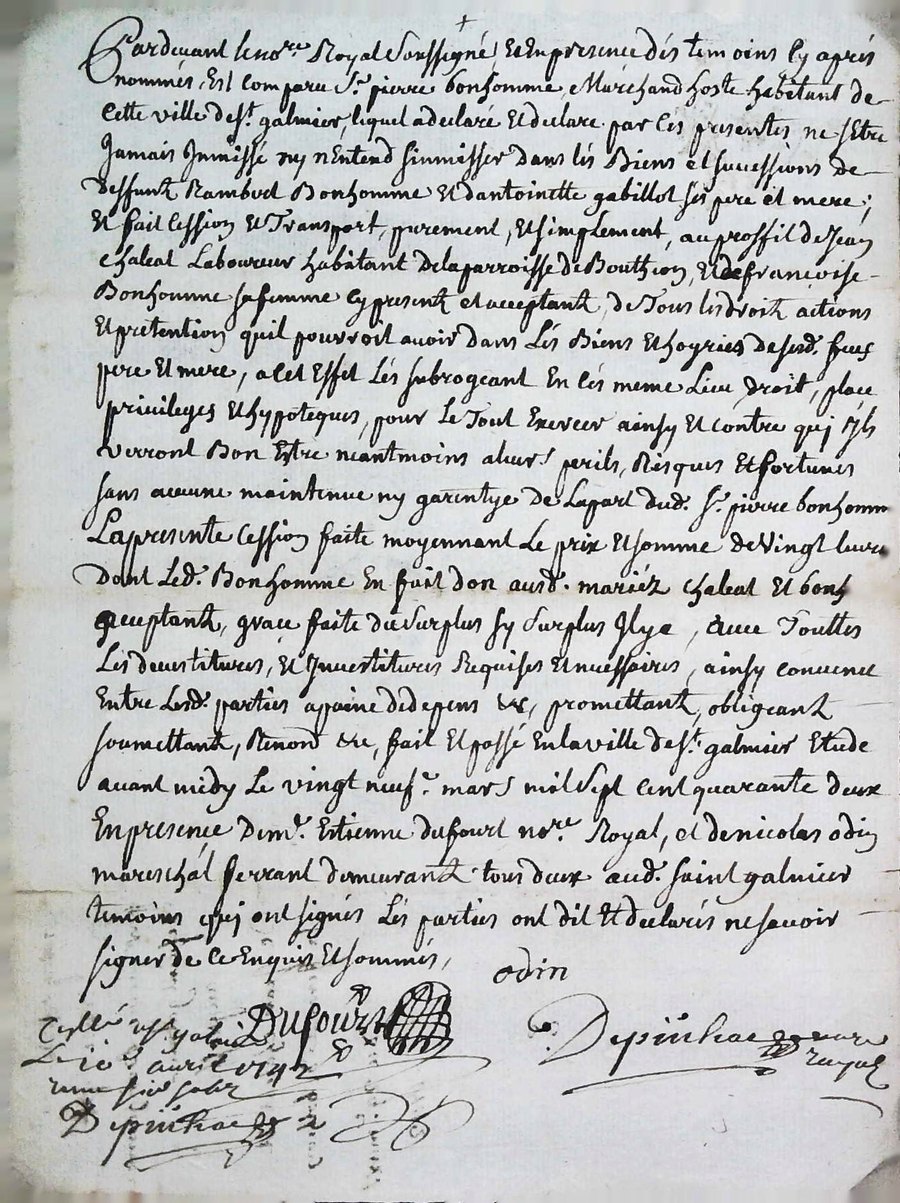 +
Pardevant le no.re Royal soussigné, Et En presence dés temoins Cy aprés
nommés, Est comparu S.r pierre bonhomme, Marchand hoste habitant de
Cette ville de S.t galmier, lequel a declaré Et declare par Ces presentes ne s'Etre
Jamais Immissé ny n'Entend s'immisser dans lés Biens et sucessions de
deffunt Rambert Bonhomme Et d'antoinette gabillot sés pere et mere;
Et fait Cession Et Transport, purement, Et simplement, au proffit de Jean
chaleat Laboureur habitant de la parroisse de Bouthéon, Et de françoise
Bonhomme sa femme Cy present et acceptant, de Tous les droit, actions
Et pretention quil pourroit avoir dans Lés Biens Et hoyries de sesd. feus
pere Et mere, a Cet Effet Lés subrogeant En lés meme Lieu, droit, place
privileges Et hypoteques, pour Le Tout Exercer ainsy Et contre qui Ils
verront Bon Estre neantmoins a leurs perils, Risques Et fortunes
sans aucune maintenue ny garentye de La part dud. S.r pierre bonhomm
La presente Cession faite moyennant Le prix Et somme de Vingt livre
dont Led. Bonhomme En fait don ausd. mariéz chaleat Et bonh
acceptant, grace faite du surplus sy surplus Il y a, avec Touttes
Lés devestitures, Et Investitures Requises Et necessaires, ainsy convenu
Entre Lesd. parties a paine de depens &c, promettant, obligeant
soumettant, Renonc &c, fait Et passé En la ville de S.t galmier Etude
avant midy Le vingt neuf.e mars mil sept Cent quarante deux
En presence de m.e Estienne dufourt no.re Royal, et de nicolas odin
mareschal ferrant demeurant tous deux aud. saint galmier
temoins qui ont signés Lés parties ont dit Et declarés ne scavoir
signer de Ce Enquis Et sommés,
odin
Dufourt
Depinhac no.re royal
Le 10.e avril 1742
Depinhac